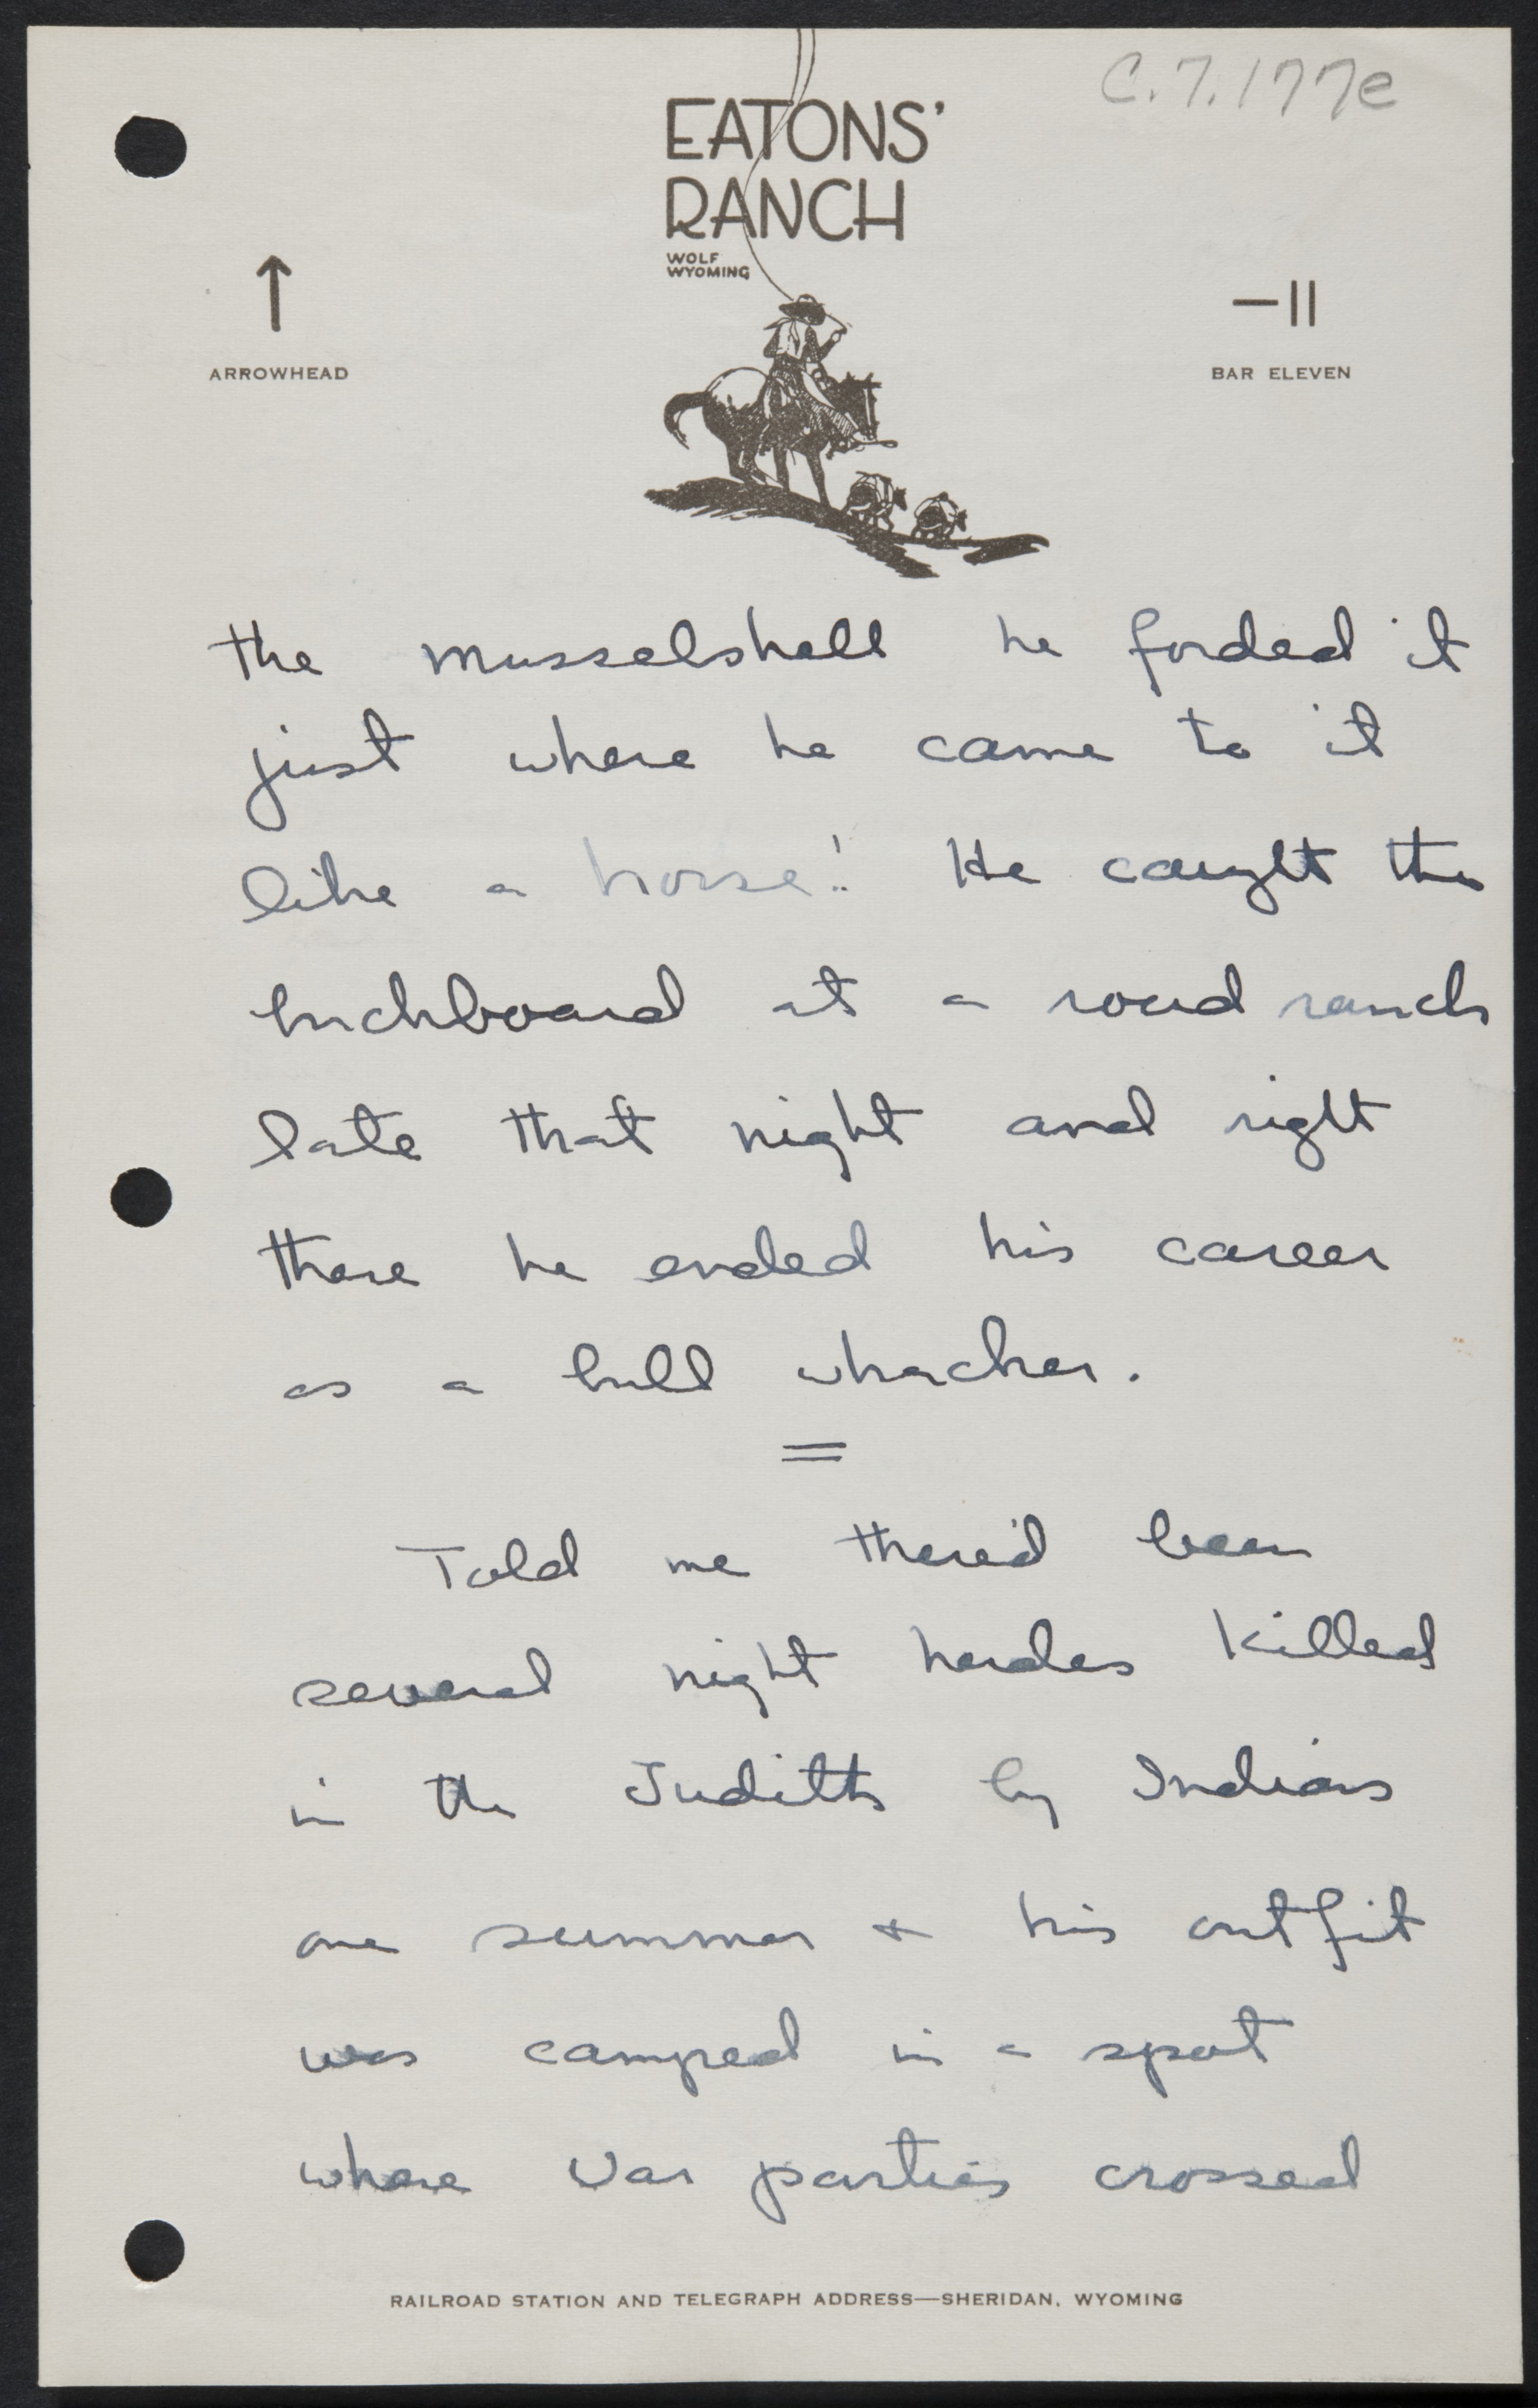 C.7.177e
EATONS'
RANCH
WOLF
WYOMING
ARROWHEAD
BAR ELEVEN
the Musselshell he forded it
just where he came to it
like a horse! He caught the
buckboard at a road ranch
late that night and right
there he ended his career
as a bull whacker.
Told me there'd been
several night herders killed
in the Judith by Indians
one summer & his outfit
was camped in a spot
where war parties crossed
RAILROAD STATION AND TELEGRAPH ADDRESS—SHERIDAN, WYOMING